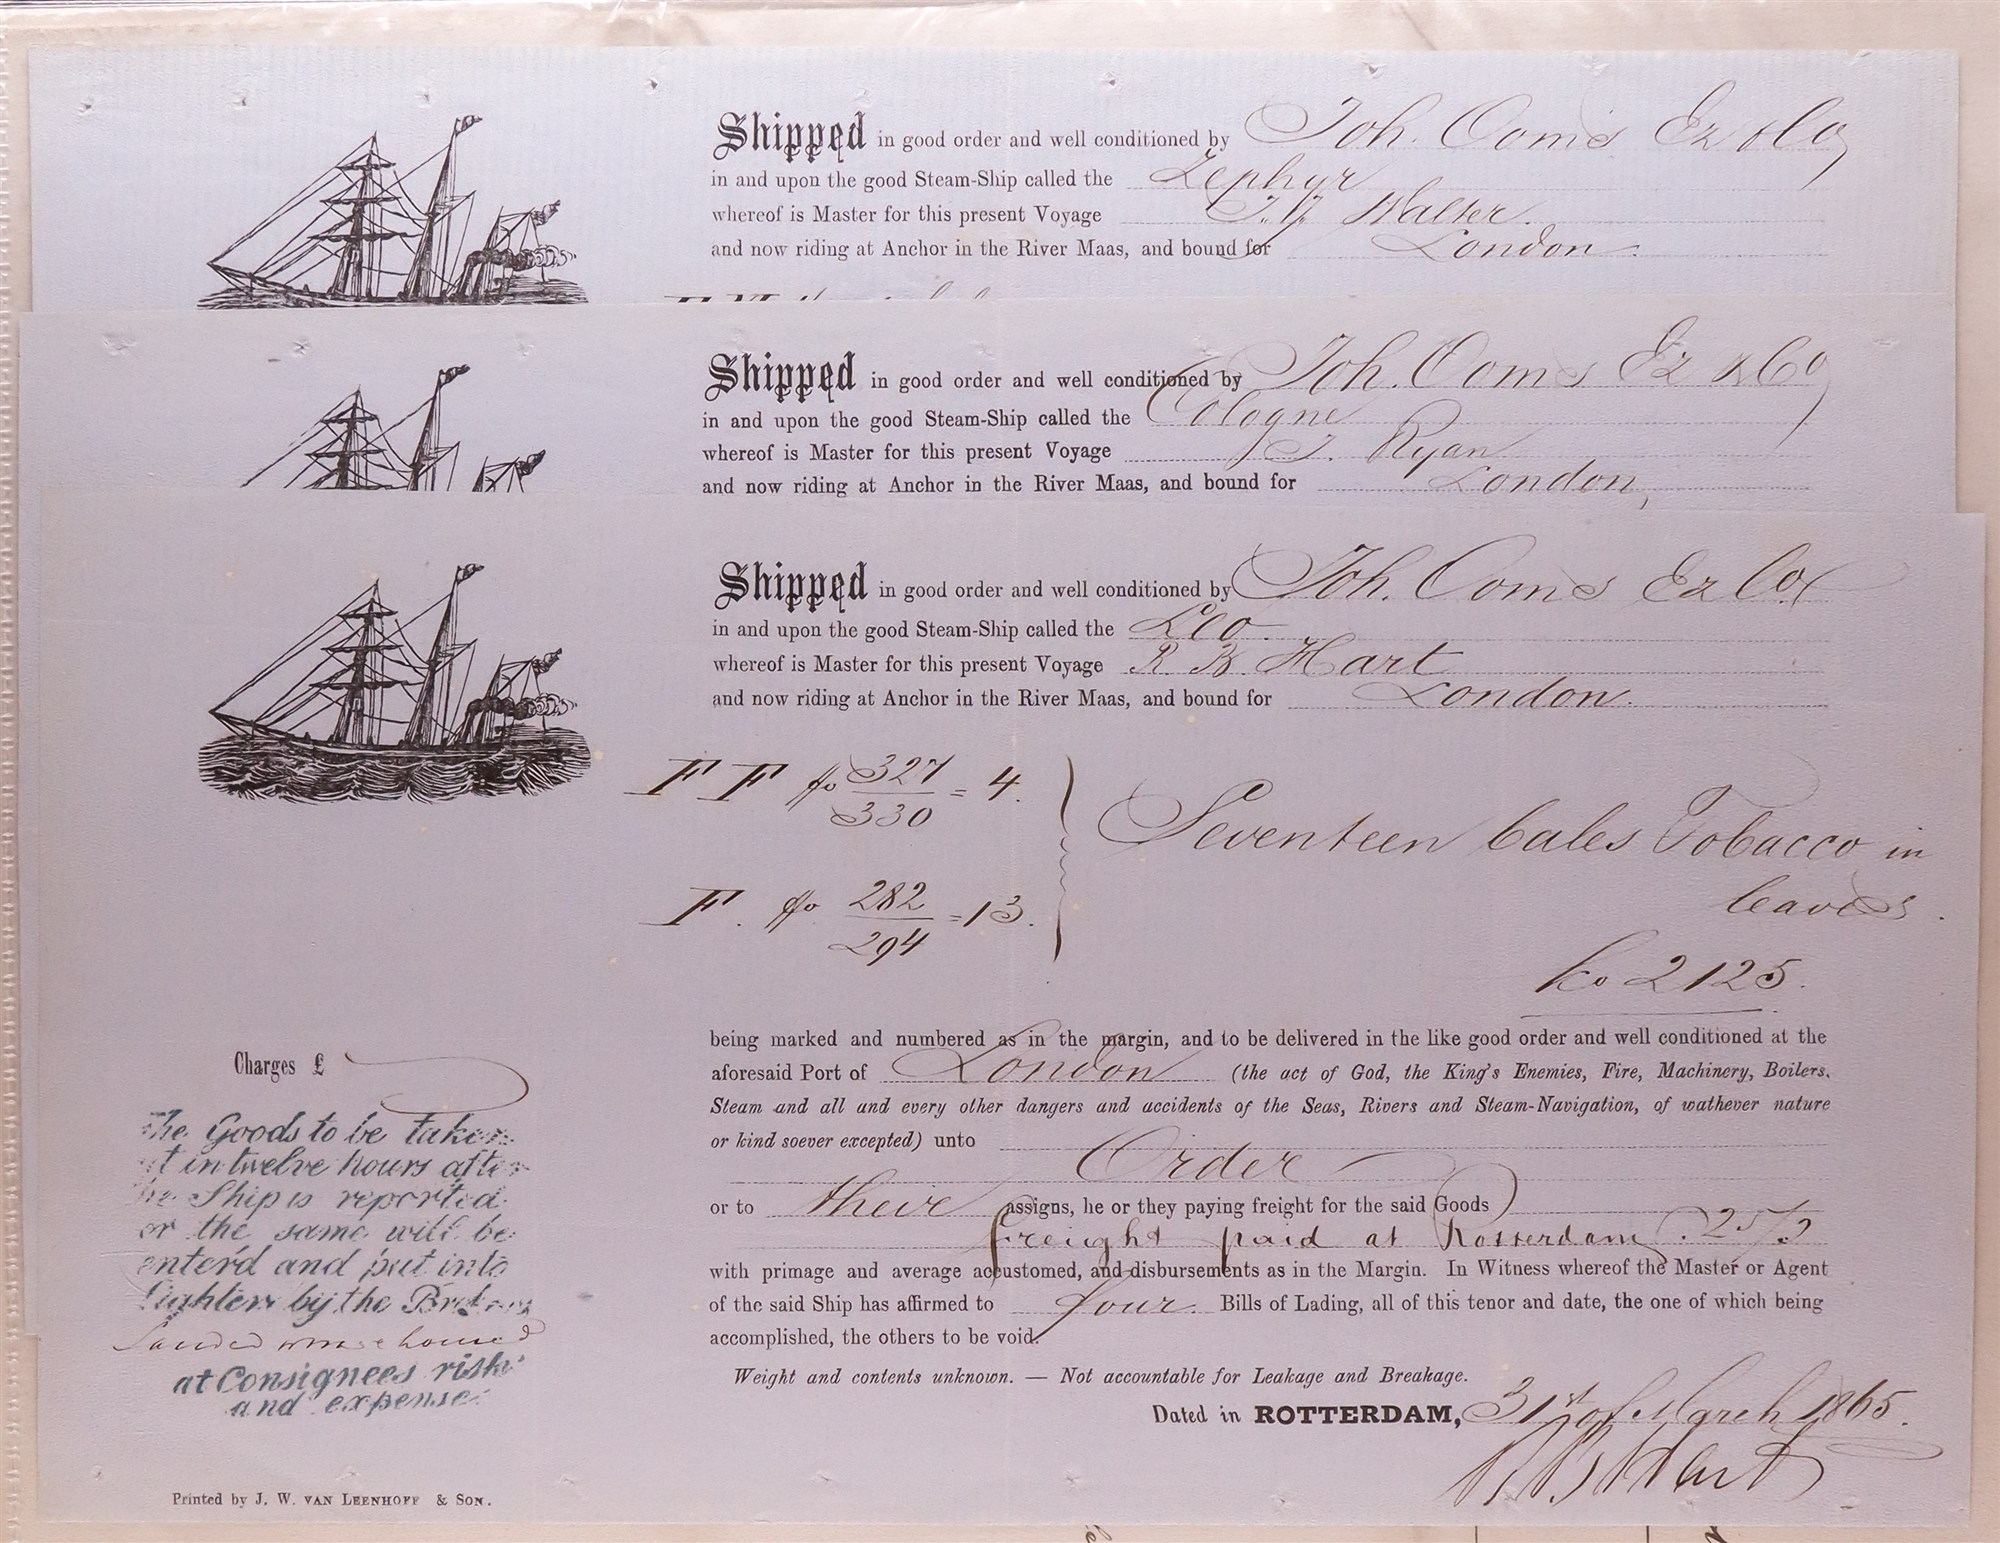 Shipped in good order and well conditioned by Joh. Ooms Ez & Co
in and upon the good Steam-Ship called the Zephyr
whereof is Master for this present Voyage Walter.
and now riding at Anchor in the River Maas, and bound for London.
Shipped in good order and well conditioned by Joh. Ooms Ez & Co
in and upon the good Steam-Ship called the Cologne
whereof is Master for this present Voyage Ryan
and now riding at Anchor in the River Maas, and bound for London,
Shipped in good order and well conditioned by Joh. Ooms Ez Co
in and upon the good Steam-Ship called the Leo.
whereof is Master for this present Voyage R Hart
and now riding at Anchor in the River Maas, and bound for London.
F F 327/330 = 4.
Seventeen bales Tobacco in
leaves.
F. 282/294 = 13.
Ko 2125.
being marked and numbered as in the margin, and to be delivered in the like good order and well conditioned at the
aforesaid Port of London (the act of God, the King's Enemies, Fire, Machinery, Boilers.
Steam and all and every other dangers and accidents of the Seas, Rivers and Steam-Navigation, of wathever nature
or kind soever excepted) unto
Order
or to their assigns, he or they paying freight for the said Goods
freight paid at Rotterdam.
with primage and average accustomed, and disbursements as in the Margin. In Witness whereof the Master or Agent
of the said Ship has affirmed to four Bills of Lading, all of this tenor and date, the one of which being
accomplished, the others to be void.
Weight and contents unknown. — Not accountable for Leakage and Breakage.
Dated in ROTTERDAM, 31st of March 1865.
Hart
Charges £
The Goods to be taken
in twelve hours after
the Ship is reported
or the same will be
enter'd and put into
Lighters by the
at Consignees risk
and expense.
Printed by J. W. VAN LEENHOFF & SON.